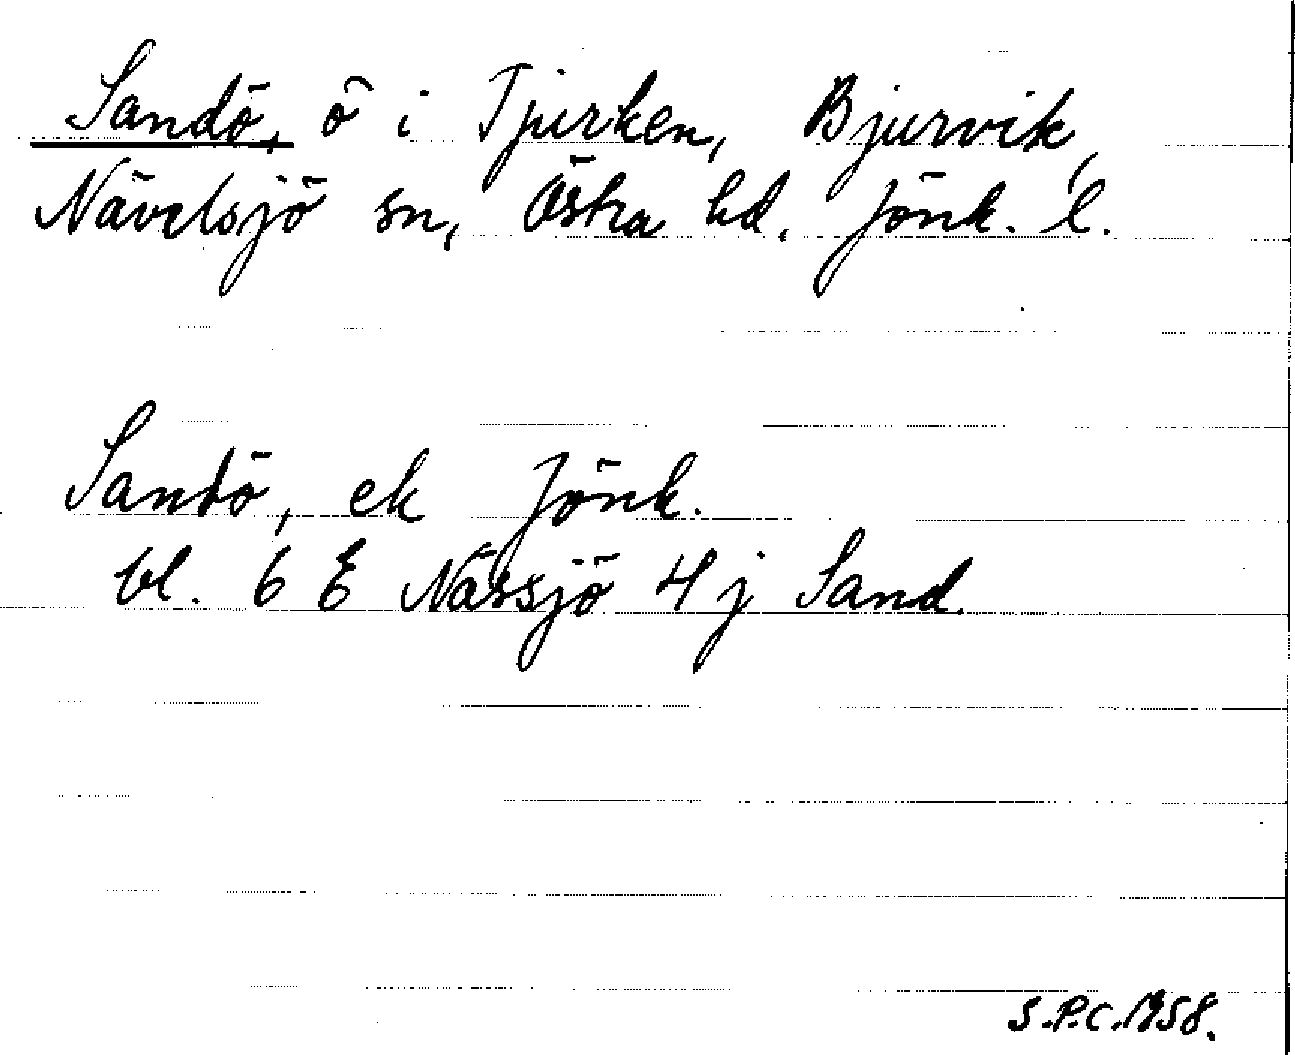 Sandö, ö i Tjurken, Bjurvik,
Nävelsjö sn, Östra hd. Jönk. l.
Sandö, ek Jönk.
bl. 6 E Nässjö 4 j Sand.
S.P.C. 1958.